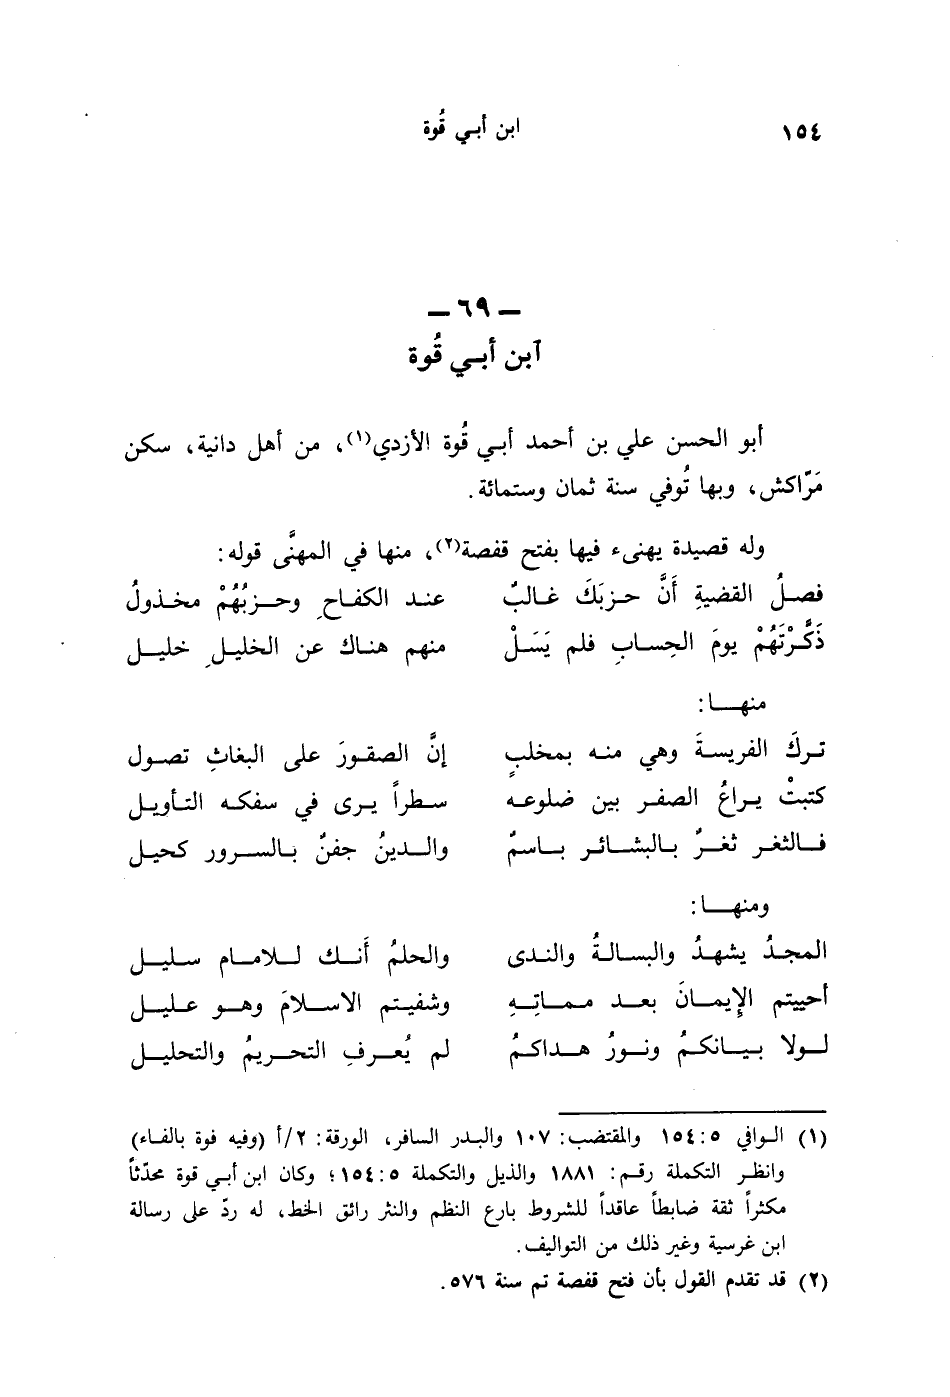 ١٥٤ ابن أبي قُوة
ـ ٦٩ ـ
آبن أبي قُوة
أبو الحسن علي بن أحمد أبي قُوة الأزدي(١)، من أهل دانية، سكن
مَرّاكش، وبها تُوفي سنة ثمان وستمائة.
وله قصيدة يهنىء فيها بفتح قفصة(٢)، منها في المهنَّى قوله:
فصلُ القضيةِ أَنَّ حزبَكَ غالبٌ عند الكفاحِ وحزبُهُمْ مخذولُ
ذَكَّرْتَهُمْ يومَ الحِسابِ فلم يَسَلْ منهم هناك عن الخليلِ خليل
منها:
تركَ الفريسةَ وهي منه بمخلبٍ إنَّ الصقورَ على البغاثِ تصول
كتبتْ يراعُ الصفر بين ضلوعه سطراً يرى في سفكه التأويل
فالثغر ثغرٌ بالبشائر باسمٌ والدينُ جفنٌ بالسرور كحيل
ومنها:
المجدُ يشهدُ والبسالةُ والندى والحلمُ أَنك للامام سليل
أحييتم الإيمانَ بعد مماتِهِ وشفيتم الاسلامَ وهو عليل
لولا بيانكمُ ونورُ هداكمُ لم يُعرفِ التحريمُ والتحليل
(١) الوافي ٥:١٥٤ والمقتضب: ١٠٧ والبدر السافر، الورقة: ٢/أ (وفيه فوة بالفاء)
وانظر التكملة رقم: ١٨٨١ والذيل والتكملة ٥:١٥٤؛ وكان ابن أبي قوة محدّثاً
مكثراً ثقة ضابطاً عاقداً للشروط بارع النظم والنثر رائق الخط، له ردّ على رسالة
ابن غرسية وغير ذلك من التواليف.
(٢) قد تقدم القول بأن فتح قفصة تم سنة ٥٧٦.